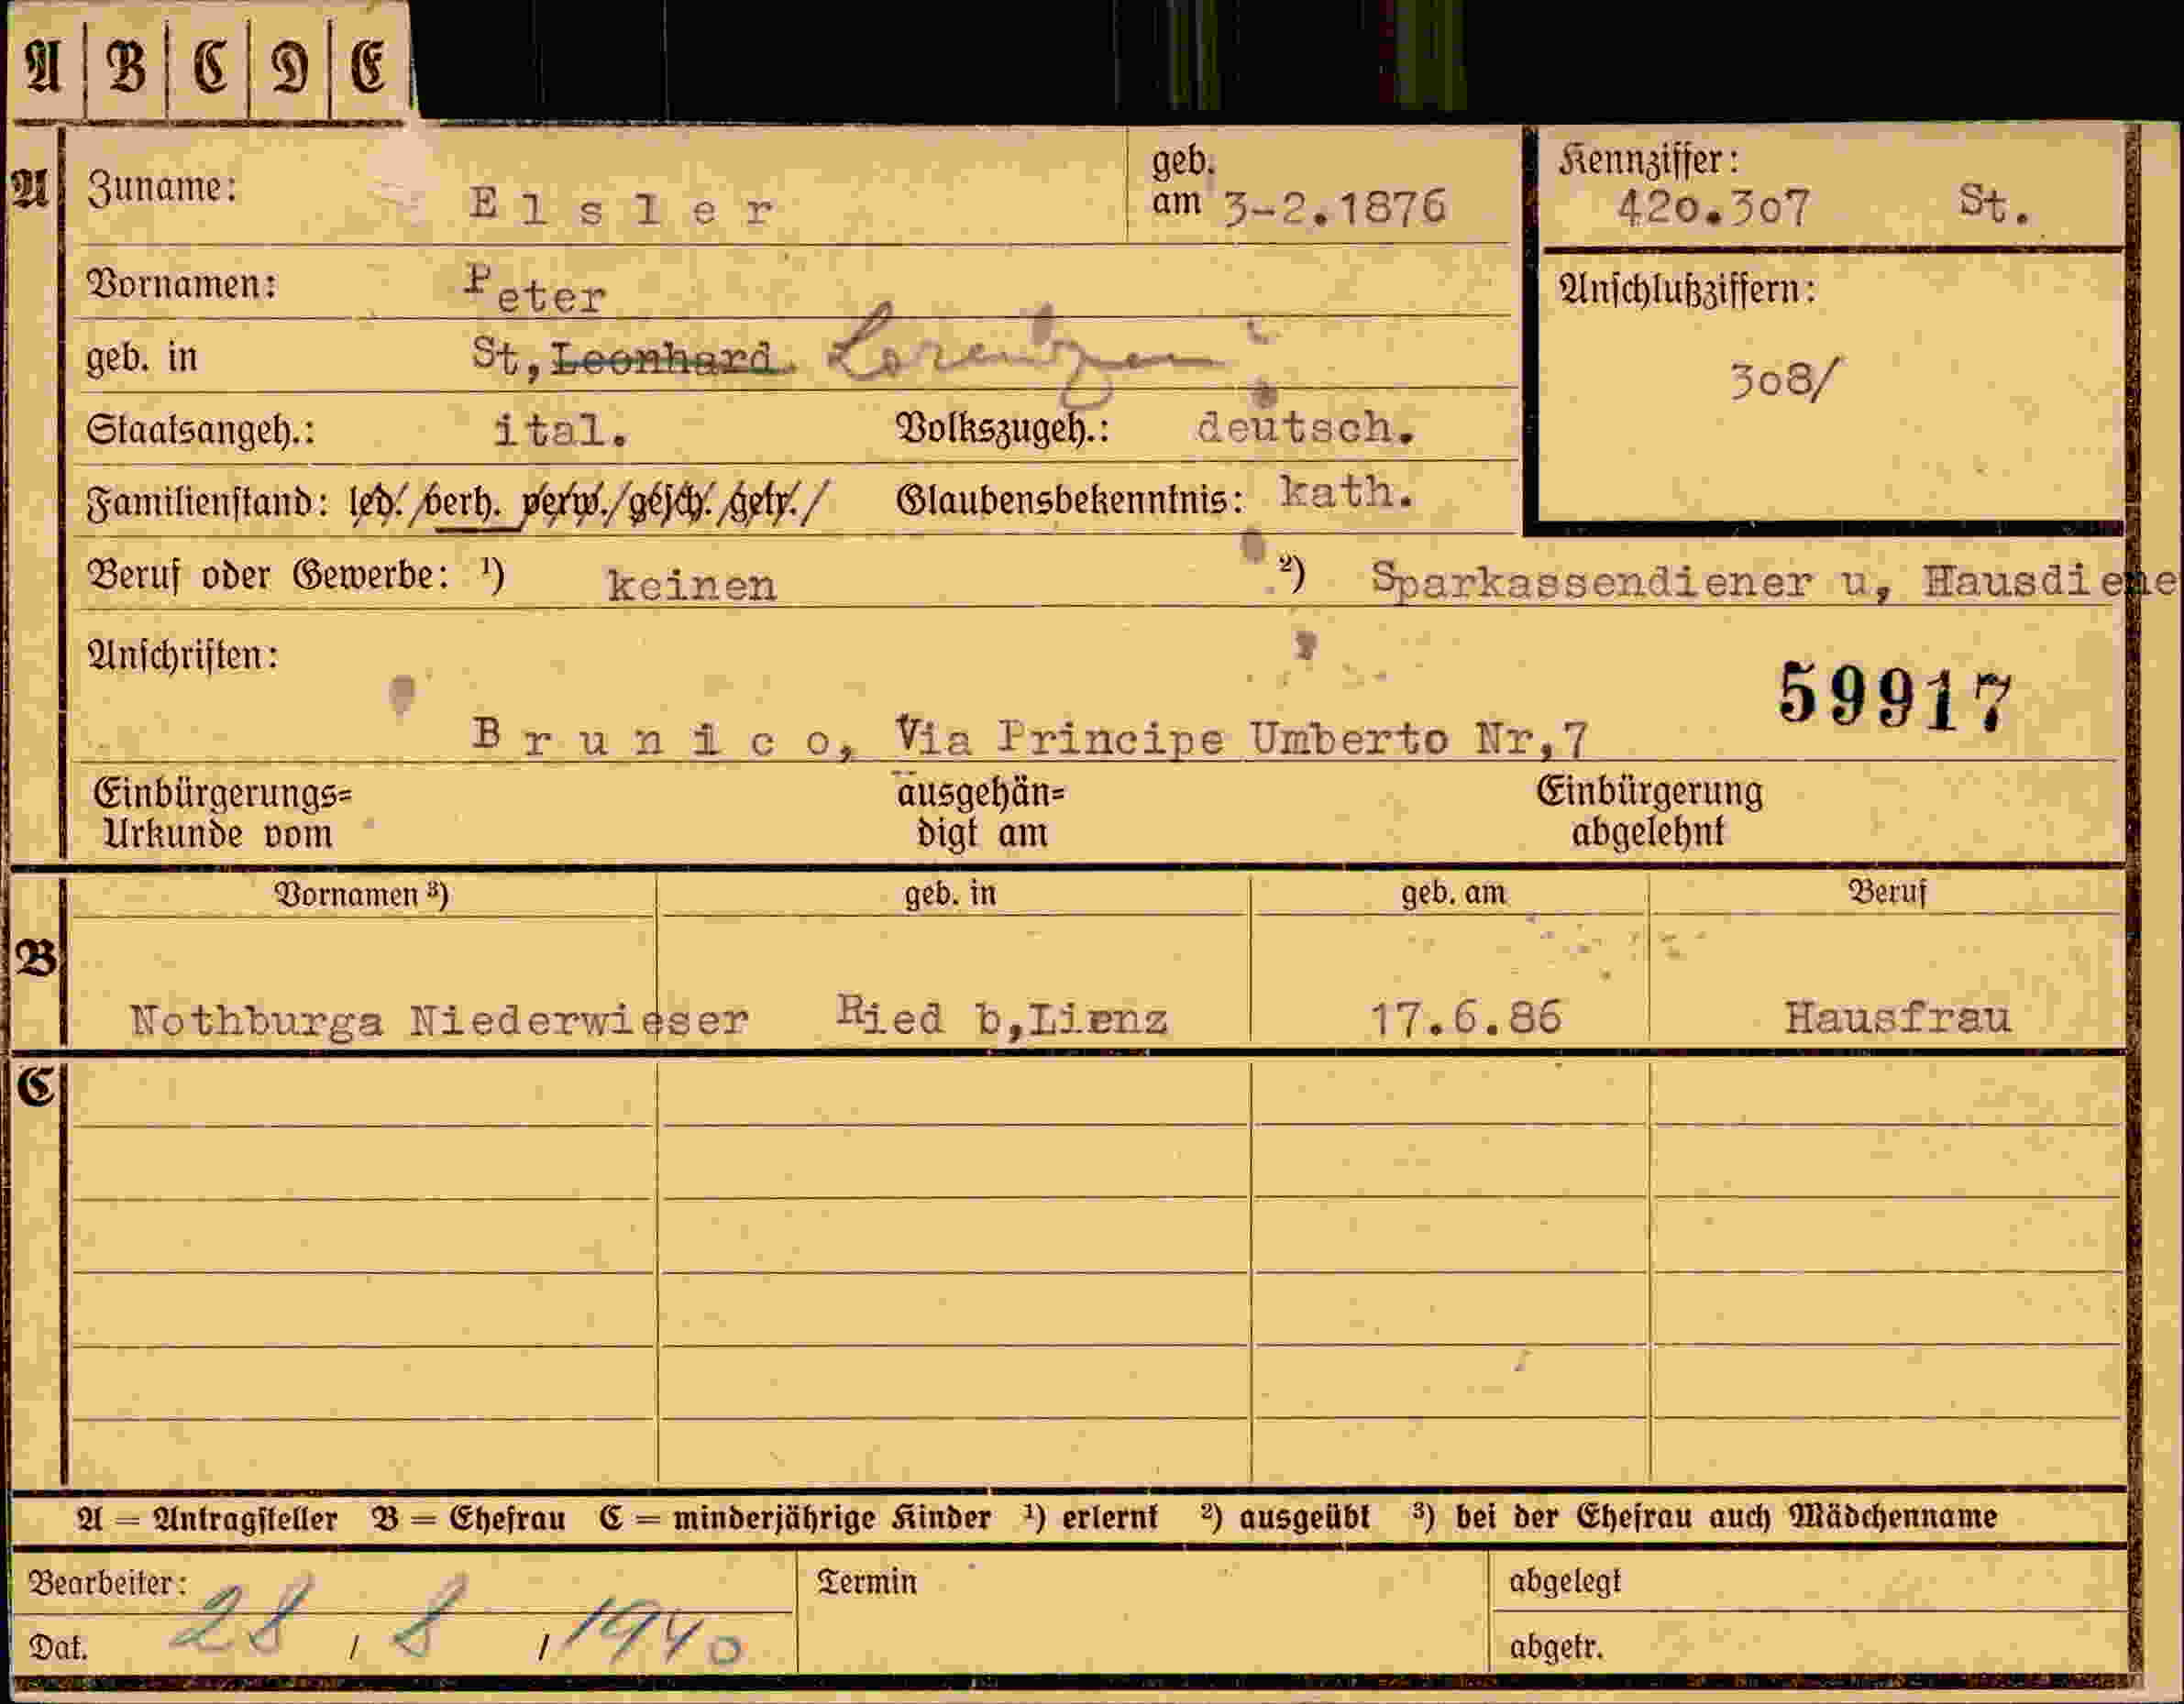 A B C D E
A Zuname: Elsler geb. am 3-2.1876 Kennziffer: 420.307 St.
Vornamen: Peter Anschlußziffern:
geb. in St, Leonhard. Lorenzen 308/
Staatsangeh.: ital. Volkszugeh.: deutsch.
Familienstand: led./verh. verw./gesch./getr./ Glaubensbekenntnis: kath.
Beruf oder Gewerbe: ¹) keinen ²) Sparkassendiener u, Hausdiene
Anschriften: 59917
Brunico, Via Principe Umberto Nr,7
Einbürgerungs= ausgehän= Einbürgerung
Urkunde vom digt am abgelehnt
B Vornamen ³) geb. in geb. am Beruf
Nothburga Niederwieser Ried b,Lienz 17.6.86 Hausfrau
C
A = Antragsteller B = Ehefrau C = minderjährige Kinder ¹) erlernt ²) ausgeübt ³) bei der Ehefrau auch Mädchenname
Bearbeiter: Termin abgelegt
Dat. 28 / 8 / 1940 abgetr.